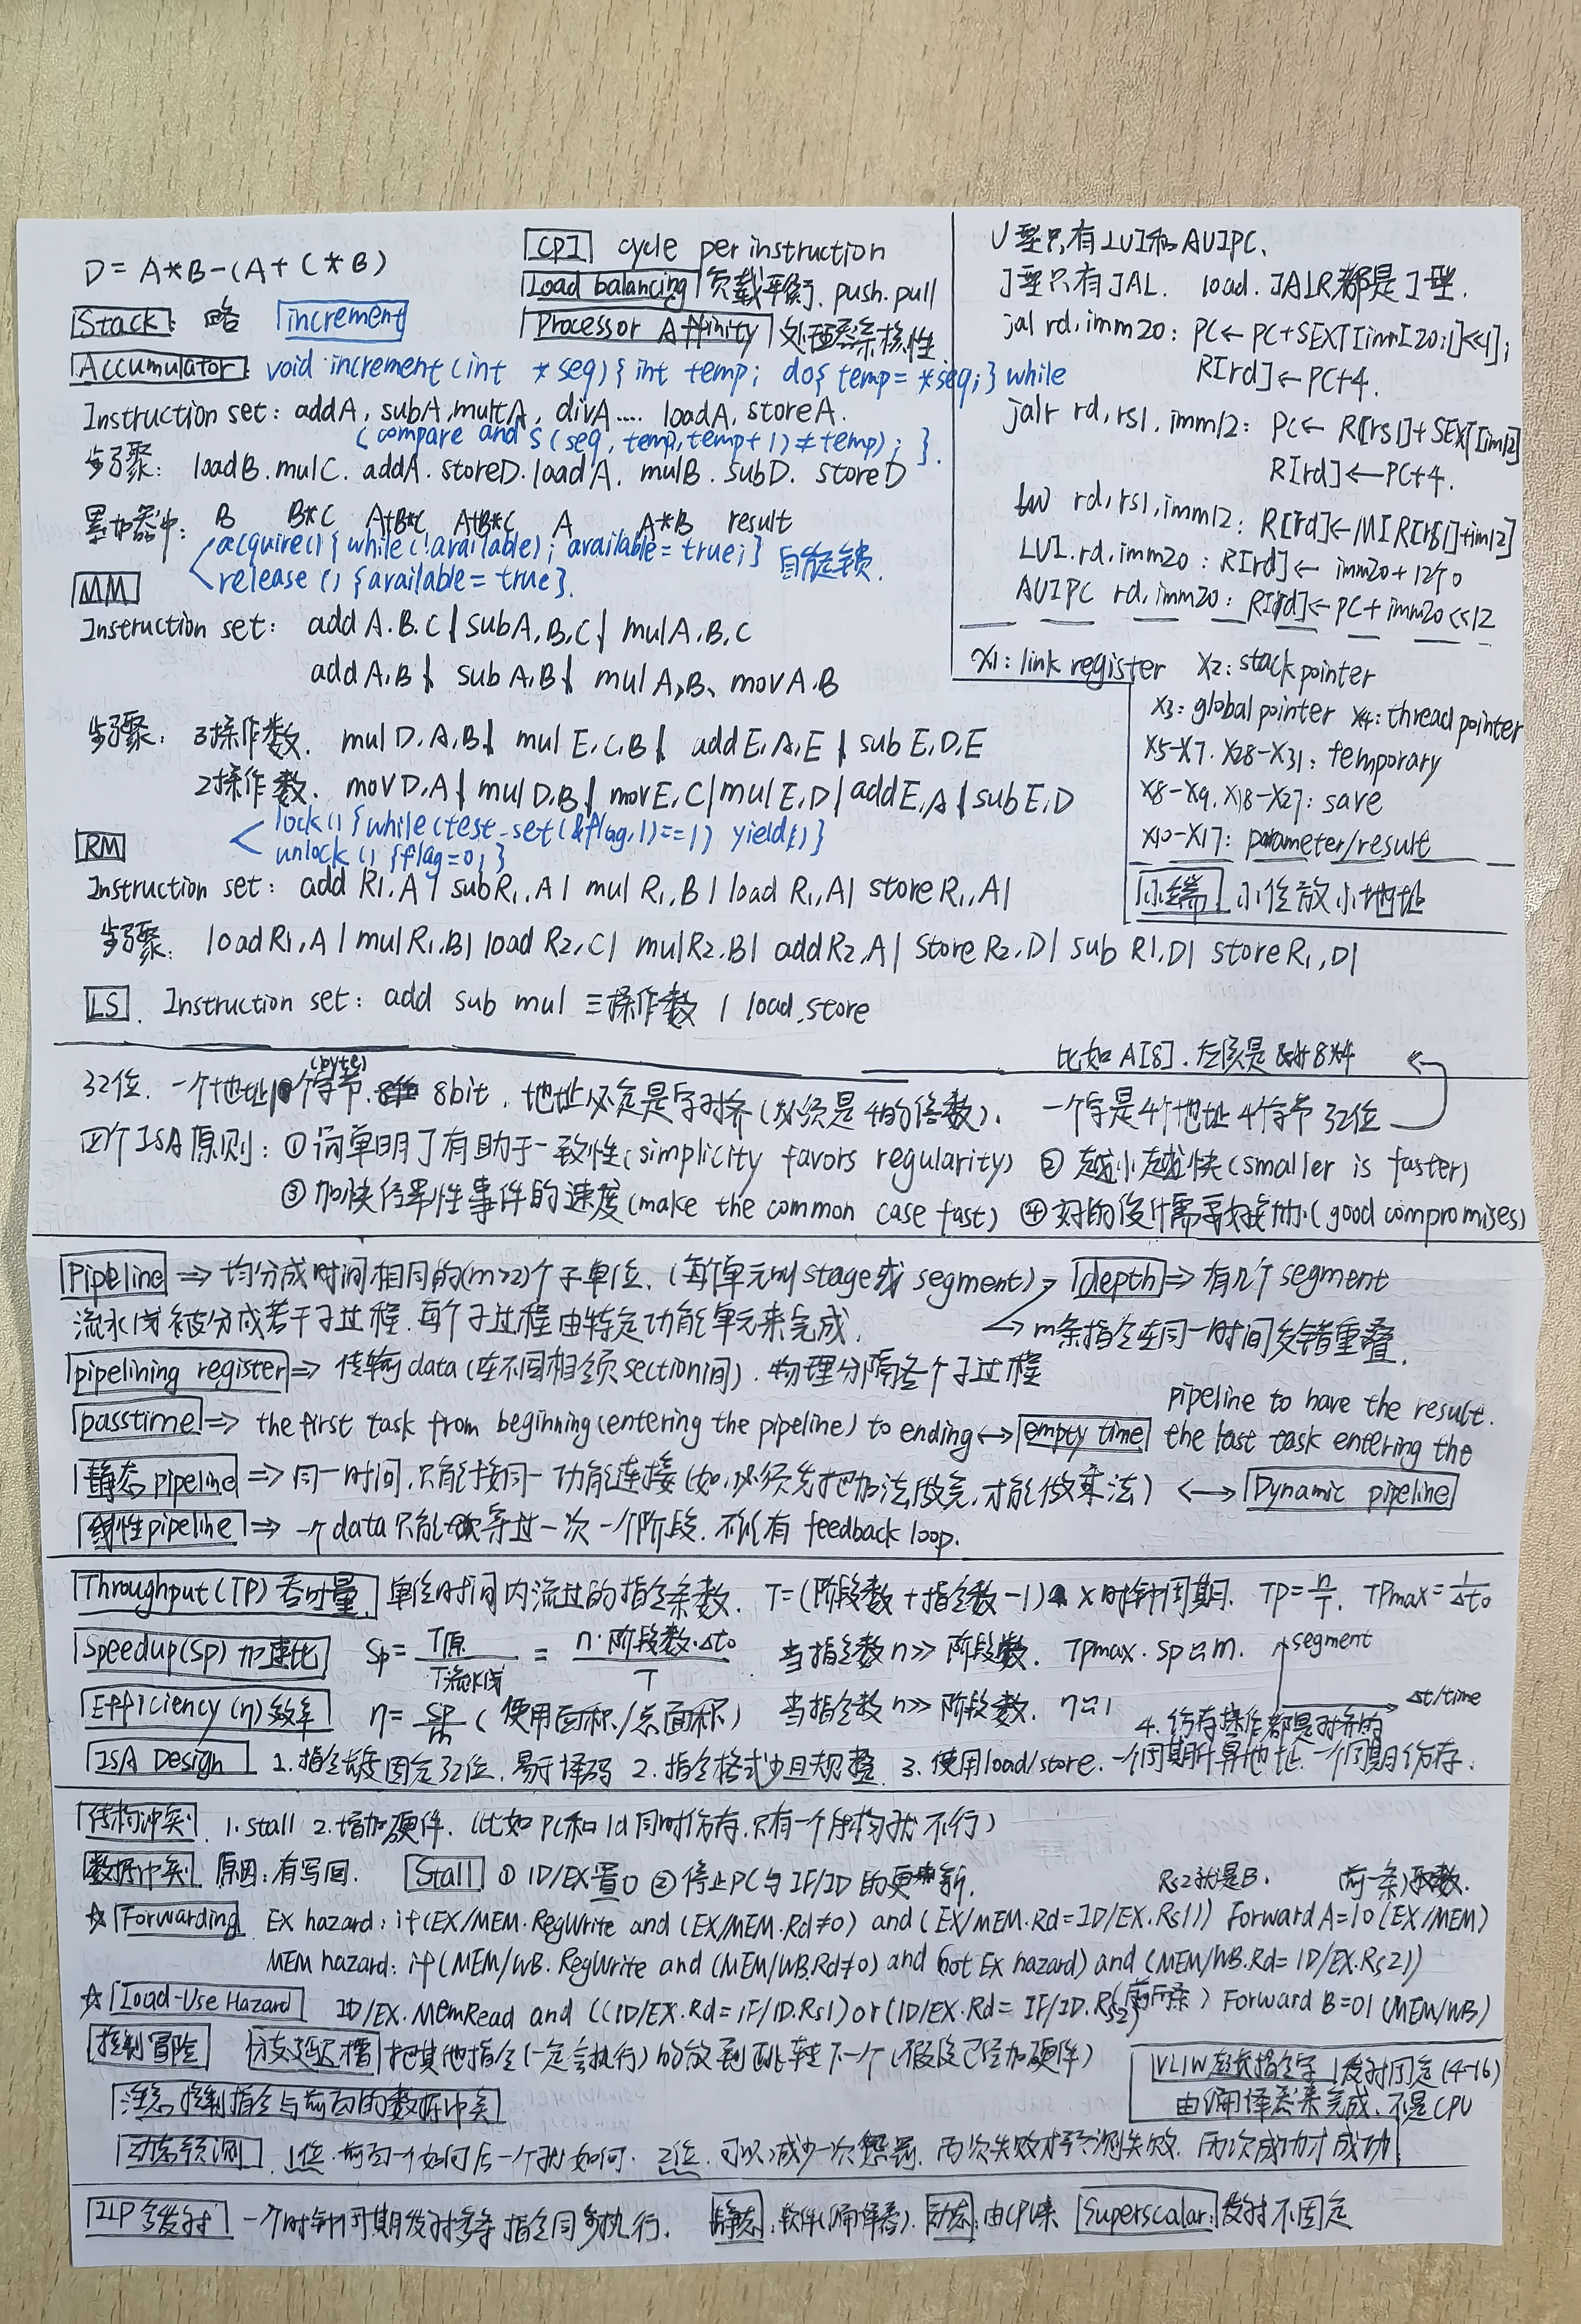 D = A*B-(A+C*B)
Stack: 略 increment
CPI cycle per instruction
Load balancing 负载平衡. push. pull
Processor Affinity 处理器亲核性
Accumulator: void increment(int *seq){ int temp; do{ temp= *seq;} while
Instruction set: addA, subA, multA, divA.... loadA, storeA.
(compare and s(seq, temp, temp+1)≠temp); }.
步骤: loadB. mulC. addA. storeD. loadA. mulB. subD. storeD
累加器中: B B*C A+B*C A+B*C A A*B result
acquire(){ while(!available); available= true;} 自旋锁.
release(){available= true}.
MM
Instruction set: add A.B.C | subA,B,C | mulA,B,C
addA,B | subA,B | mulA,B、movA.B
步骤: 3操作数. mulD,A,B | mulE,C,B | addE,A,E | subE,D,E
2操作数. movD,A | mulD,B | movE,C | mulE,D | addE,A | subE,D
lock(){while(test_set(&flag,1)==1) yield();}
unlock(){flag=0;}
RM
Instruction set: add R1,A | subR1,A | mulR1,B | load R1,A | storeR1,A |
步骤: loadR1,A | mulR1,B | load R2,C | mulR2.B | addR2,A | StoreR2,D | sub R1,D | storeR1,D |
LS. Instruction set: add sub mul 三操作数 | load.store
U型只有LUI和AUIPC.
J型只有JAL. load. JALR都是I型.
jal rd,imm20: PC← PC+SEXT[imm[20:1]<<1];
R[rd]←PC+4.
jalr rd,rs1,imm12: PC← R[rs1]+SEXT[imm12]
R[rd]←PC+4.
lw rd,rs1,imm12: R[rd]←M[R[rs1]+imm12]
LUI.rd,imm20: R[rd]← imm20+12个0
AUIPC rd,imm20: R[rd]←PC+imm20<<12
X1: link register X2: stack pointer
X3: global pointer X4: thread pointer
X5-X7. X28-X31: temporary
X8-X9, X18-X27: save
X10-X17: parameter/result
小端 小位放小地址
比如A[8]. 左原是 8*4
32位. 一个地址1个字节(byte). 8bit. 地址必定是字对齐(必须是4的倍数). 一个字是4个地址 4个字节 32位
四个ISA原则: ①简单明了有助于一致性(simplicity favors regularity) ②越小越快(smaller is faster)
③加快经常性事件的速度(make the common case fast) ④好的设计需要折中(good compromises)
Pipeline ⇒ 均分成时间相同的(m≥2)个子单位. (每个单元叫stage或segment) depth ⇒ 有几个segment
流水线被分成若干子过程. 每个子过程由特定功能单元来完成. → m条指令在同一时间交错重叠.
pipelining register ⇒ 传输data(在不同相邻section间). 物理分隔各个子过程
passtime ⇒ the first task from beginning(entering the pipeline) to ending ↔ empty time the last task entering the
pipeline to have the result.
静态pipeline ⇒ 同一时间.只能按同一功能连接(如,必须先把加法做完,才能做乘法) ↔ Dynamic pipeline
线性pipeline ⇒ 一个data只能 等过一次一个阶段. 不能有feedback loop.
Throughput(TP)吞吐量 单位时间内流过的指令条数. T=(阶段数+指令数-1)×时钟周期. TP=n/T. TPmax=1/Δt0
Speedup(Sp)加速比 Sp= T原/T流水线 = n·阶段数·Δt0/T 当指令数n≫阶段数. TPmax. Sp≈m. segment
Efficiency(η)效率 η= Sp/m (使用面积/总面积) 当指令数n≫阶段数. η≈1 Δt/time
4. 访存操作都是对齐的
ISA Design 1.指令长度固定32位. 易于译码 2.指令格式少且规整 3.使用load/store. 一个周期计算地址 一个周期访存.
结构冲突 1.stall 2.增加硬件. (比如PC和ld同时访存,只有一个结构就不行)
数据冲突 原因:有写回. Stall ①ID/EX置0 ②停止PC与IF/ID的更新. Rs2就是B. (前一条)取数.
☆Forwarding EX hazard: if(EX/MEM.RegWrite and (EX/MEM.Rd≠0) and (EX/MEM.Rd=ID/EX.Rs1)) Forward A=10 (EX/MEM)
MEM hazard: if(MEM/WB.RegWrite and (MEM/WB.Rd≠0) and (not Ex hazard) and (MEM/WB.Rd=ID/EX.Rs2))
☆Load-Use Hazard ID/EX.MemRead and ((ID/EX.Rd=IF/ID.Rs1)or(ID/EX.Rd= IF/ID.Rs2) (前两条) Forward B=01 (MEM/WB)
控制冒险 分支延迟槽 把其他指令(一定会执行)的放到跳转下一个(假设已经加硬件)
VLIW超长指令字 发射固定(4-16)
由编译器来完成.不是CPU
注意控制指令与前面的数据冲突
动态预测 1位.前面一个如何后一个就如何. 2位.可以减少一次惩罚. 两次失败才预测失败. 两次成功才成功
ILP多发射 一个时钟周期发射多条指令同步执行. 静态:软件(编译器). 动态:由CPU来 Superscalar:发射不固定